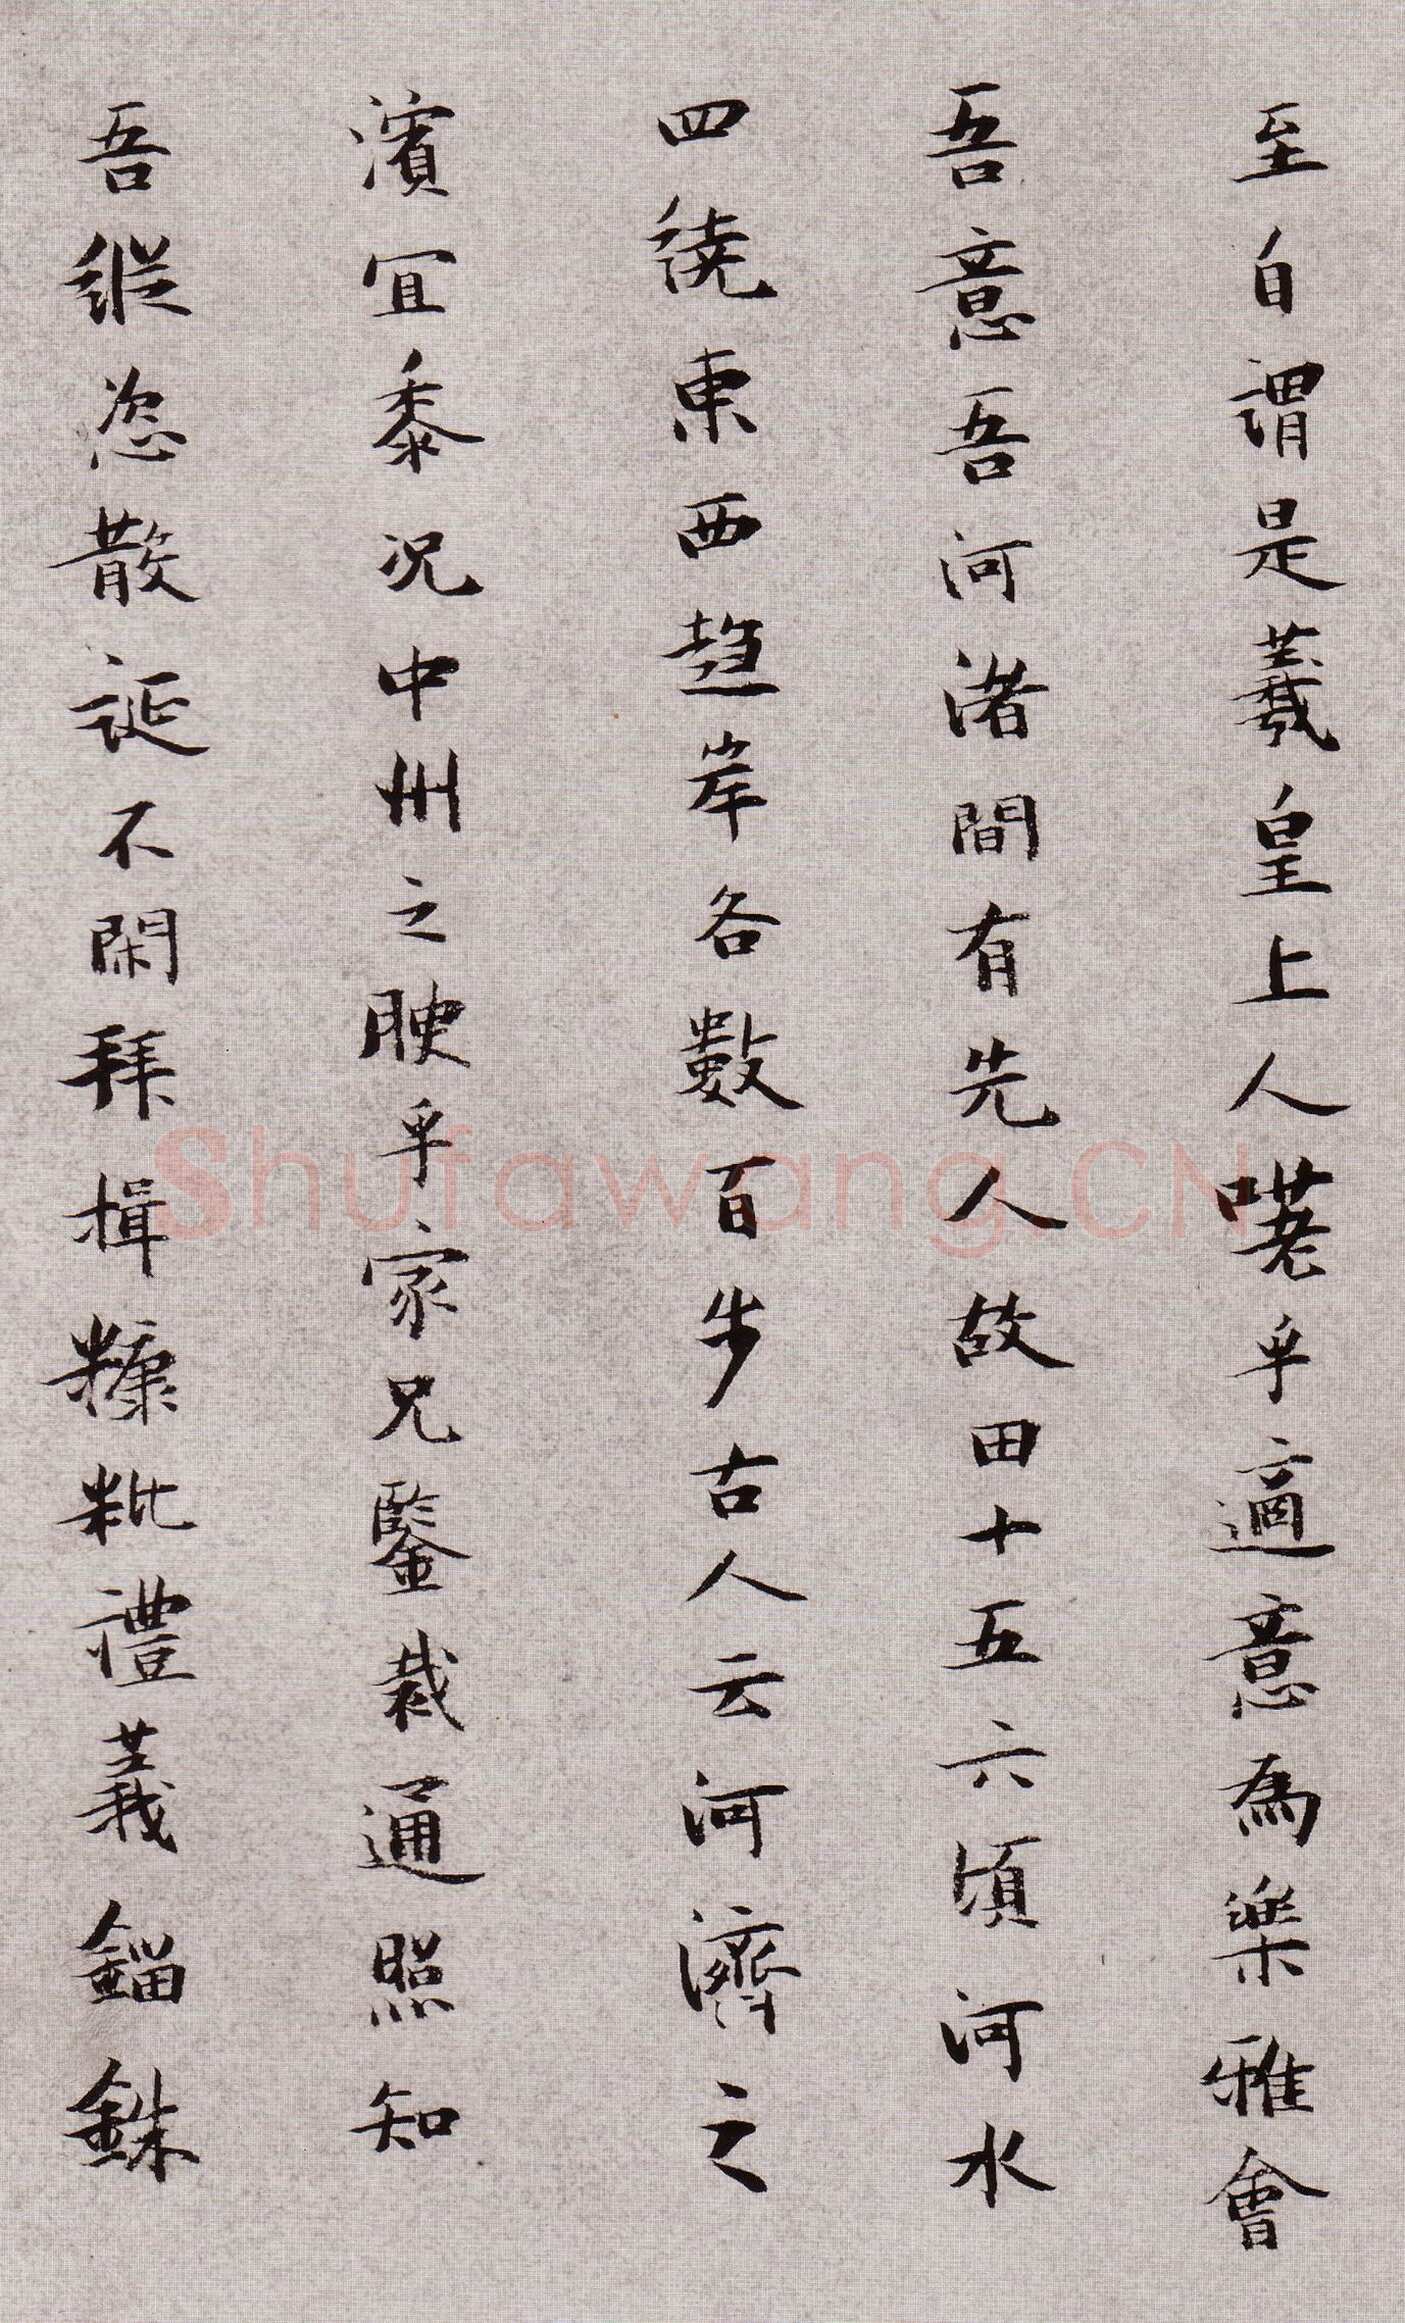 至自謂是羲皇上人嗟乎適意為樂雅會
吾意吾河渚間有先人故田十五六頃河水
四繞東西趨岸各數百步古人云河濟之
濱宜黍況中州之腴乎家兄鑒裁通照知
吾縱恣散誕不閑拜揖糠粃禮義錙銖
Shufawang.CN